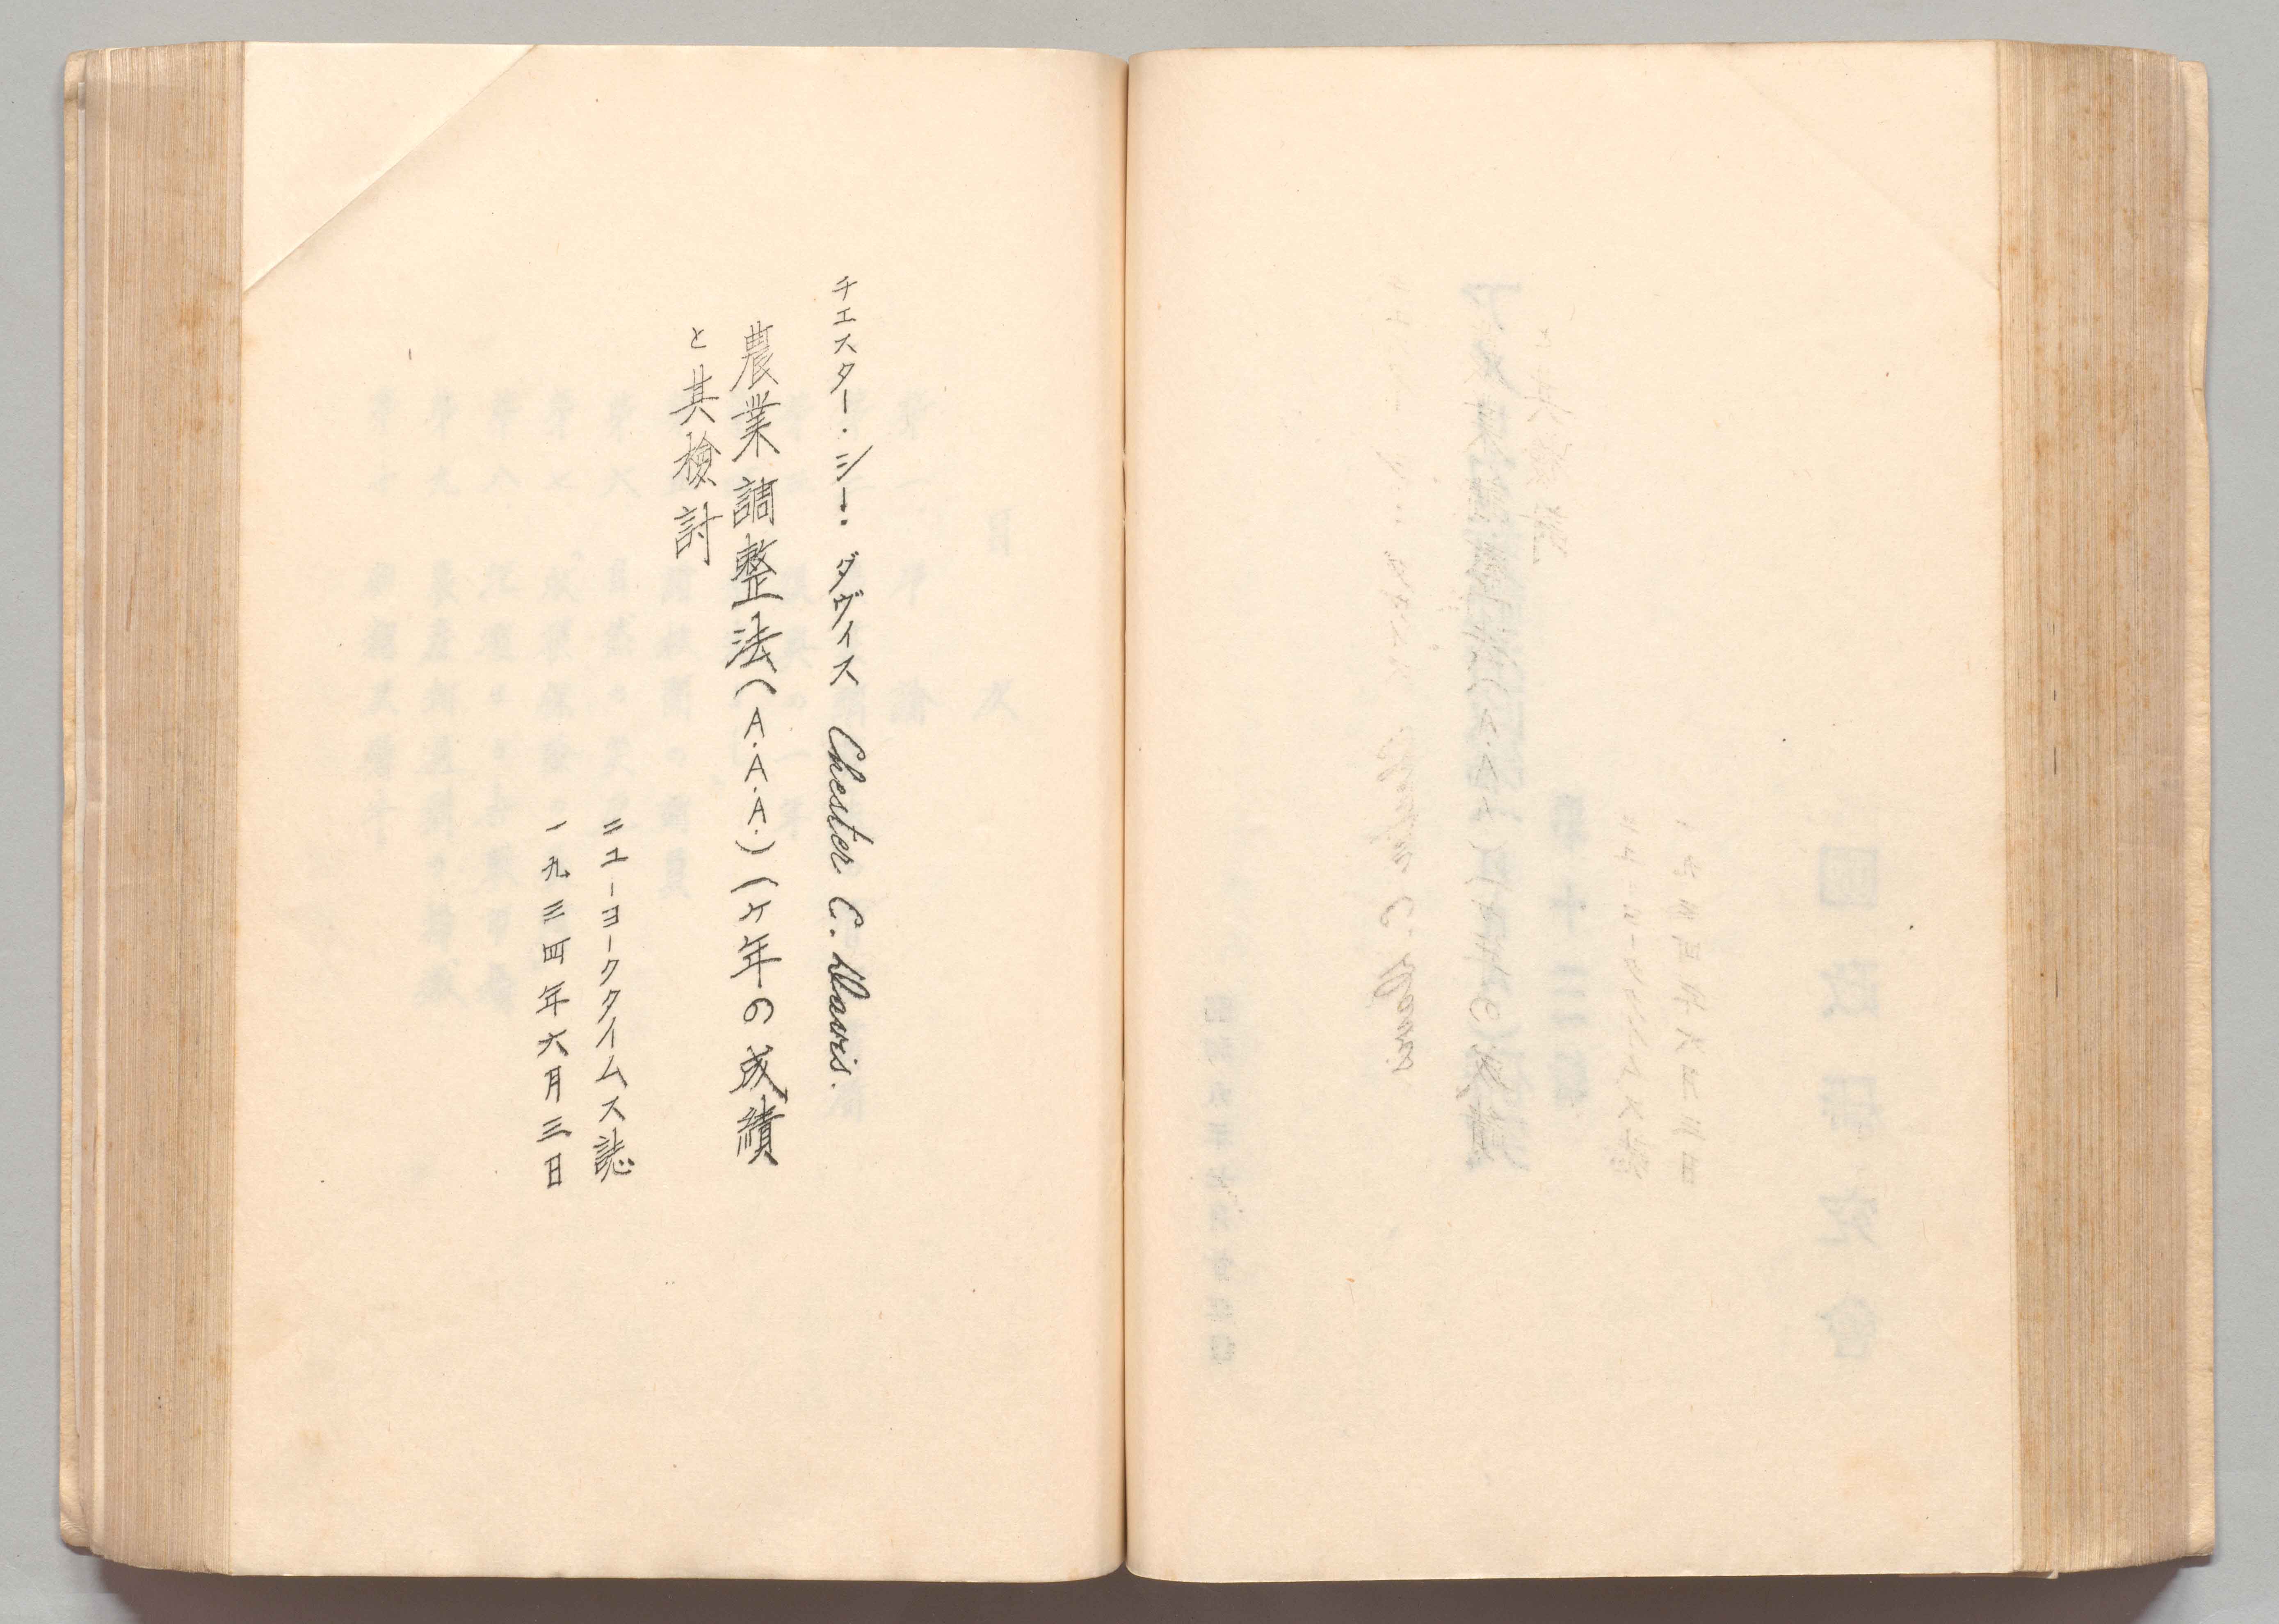 チエスター・シー・ダヴィス Chester C. Davis.
農業調整法(A.A.A.)一ヶ年の成績
と其檢討
ニューヨークタイムス誌
一九三四年六月三日